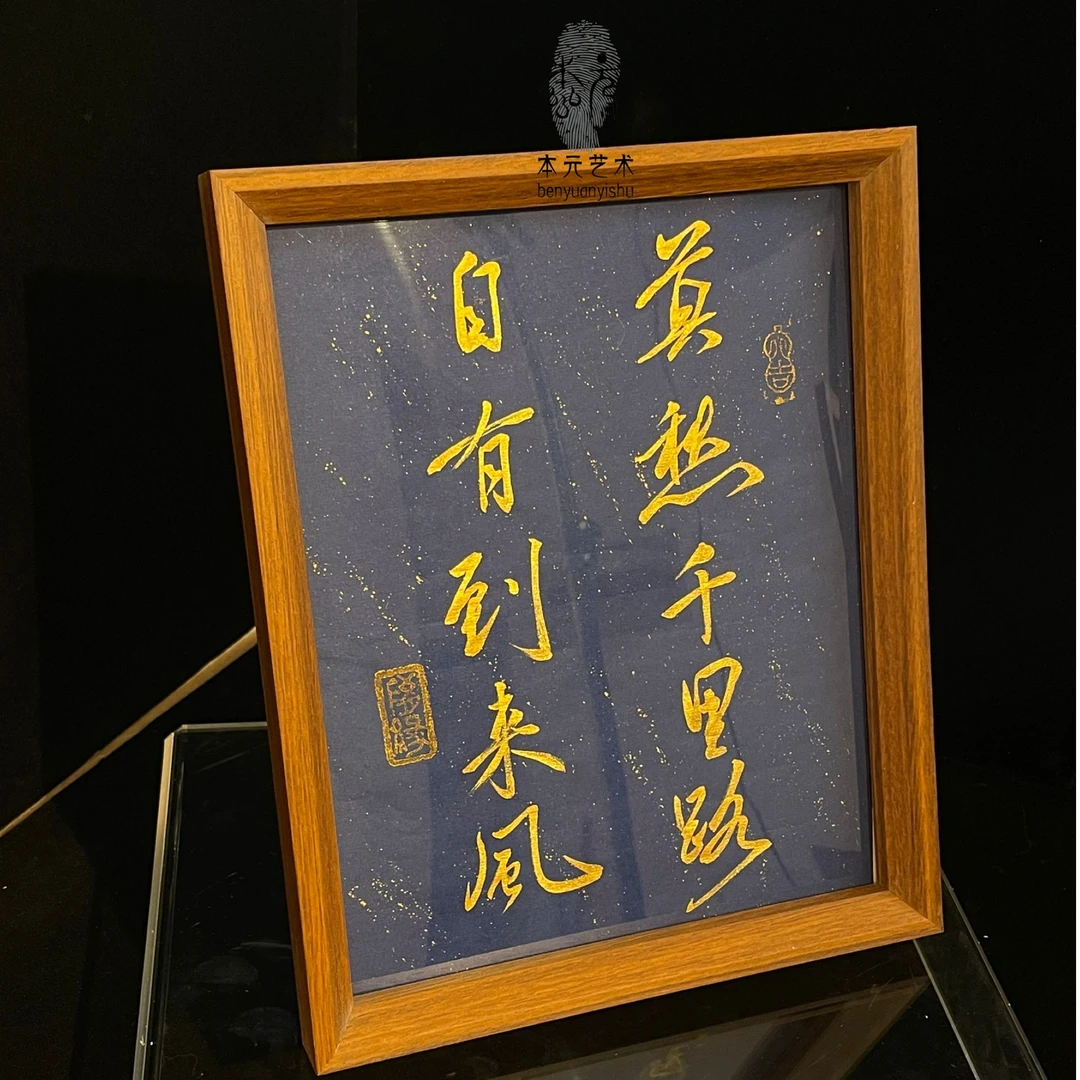 本元艺术
benyuanyishu
莫愁千里路
自有到来風
大吉